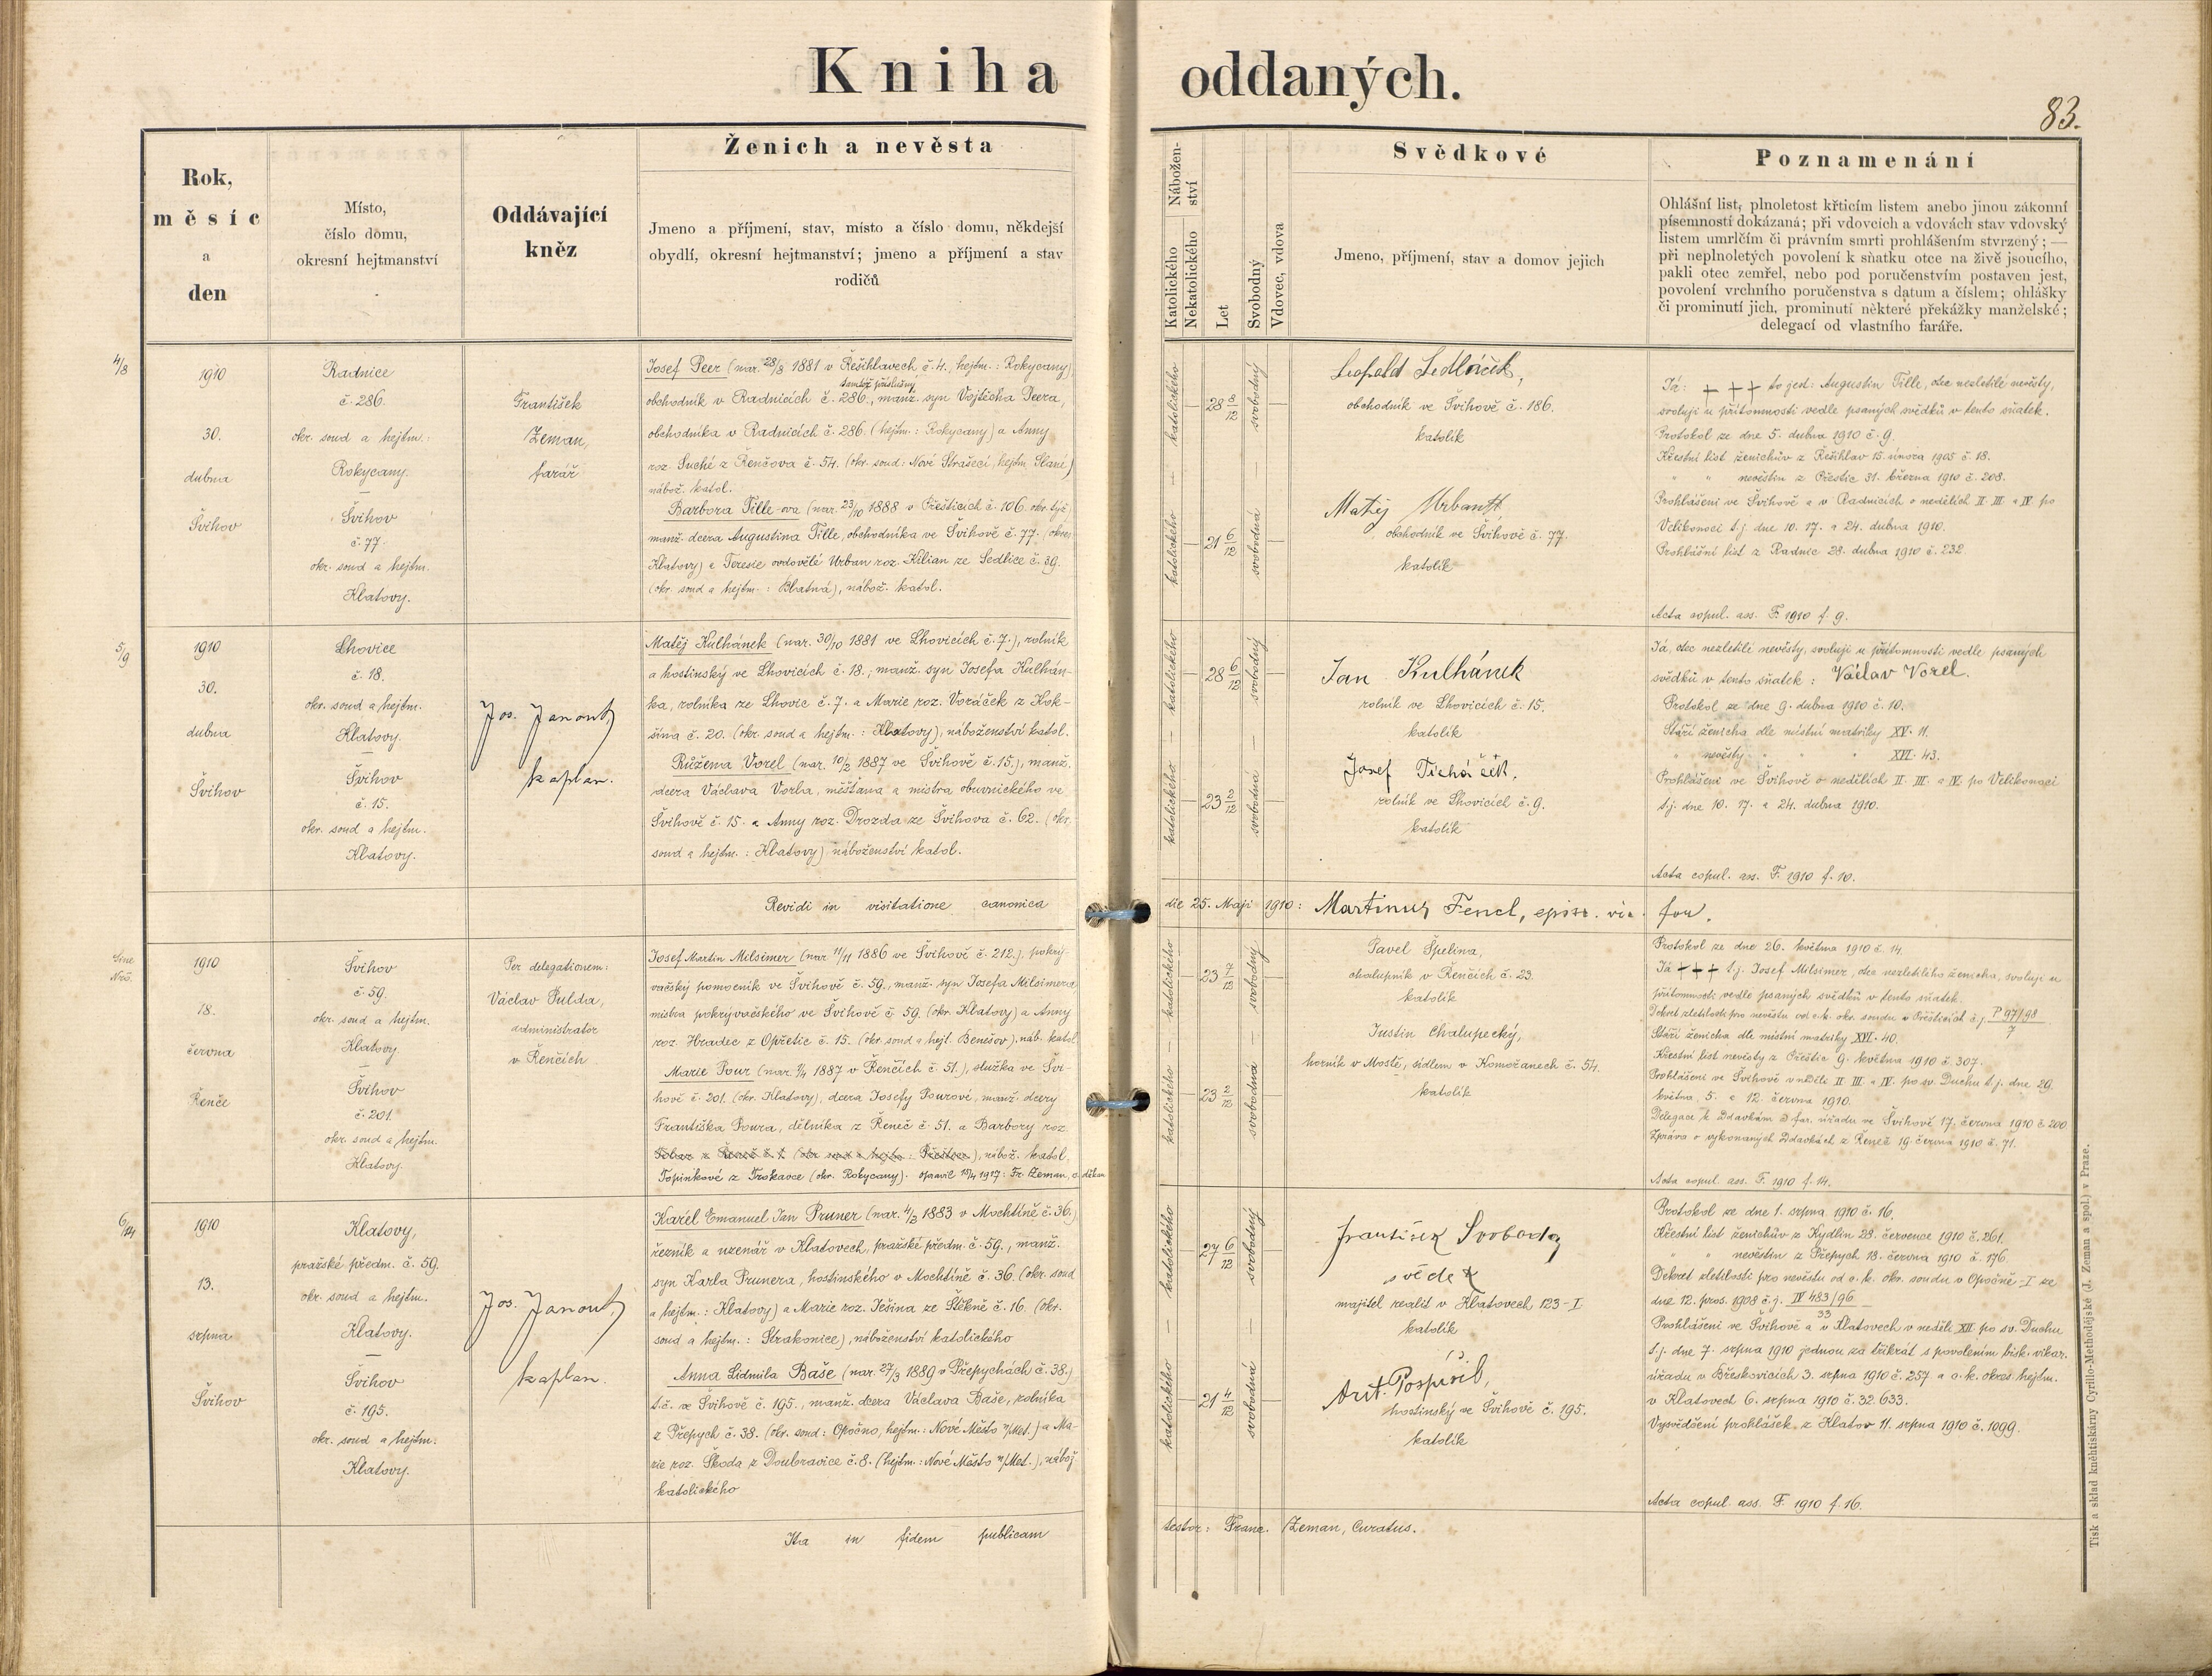 Kniha oddaných.
83.
Rok,
měsíc
a
den
Místo,
číslo domu,
okresní hejtmanství
Oddávající
kněz
Ženich a nevěsta
Jmeno a příjmení, stav, místo a číslo domu, někdejší
obydlí, okresní hejtmanství; jmeno a příjmení a stav
rodičů
Nábožen-
ství
Katolického
Nekatolického
Let
Svobodný
Vdovec, vdova
Svědkové
Jmeno, příjmení, stav a domov jejich
Poznamenání
Ohlášní list, plnoletost křticím listem anebo jinou zákonní
písemností dokázaná; při vdovcích a vdovách stav vdovský
listem umrlčím či právním smrti prohlášením stvrzený; —
při neplnoletých povolení k sňatku otce na živě jsoucího,
pakli otec zemřel, nebo pod poručenstvím postaven jest,
povolení vrchního poručenstva s datum a číslem; ohlášky
či prominutí jich, prominutí některé překážky manželské;
delegací od vlastního faráře.
4/8
1910
30.
dubna
Švihov
Radnice
č. 286.
okr. soud a hejtm.:
Rokycany.
Švihov
č. 77.
okr. soud a hejtm.
Klatovy.
František
Zeman,
farář
Josef Peer (nar. 28/8 1881 v Řešihlavech č. 4., hejtm.: Rokycany),
tamtéž příslušný
obchodník v Radnicích č. 286., manž. syn Vojtěcha Peera,
obchodníka v Radnicích č. 286. (hejtm.: Rokycany) a Anny
roz. Suché z Řenčova č. 54. (okr. soud: Nové Strašecí, hejtm. Slané)
nábož. katol.
Barbora Tille-ova (nar. 23/10 1888 v Přešticích č. 106. okr. týž
manž. dcera Augustina Tille, obchodníka ve Švihově č. 77. (okres
Klatovy) a Teresie ovdovělé Urban roz. Kilian ze Sedlice č. 39.
(okr. soud a hejtm.: Blatná), nábož. katol.
katolického
28 8/12
svobodný
katolického
21 6/12
svobodná
Leopold Sedláček,
obchodník ve Švihově č. 186.
katolík
Matěj Urban
obchodník ve Švihově č. 77.
katolík
Já: + + + to jest: Augustin Tille, otec nezletilé nevěsty,
svoluji u přítomnosti vedle psaných svědků v tento sňatek.
Protokol ze dne 5. dubna 1910 č. 9.
Křestní list ženichův z Řešihlav 15. února 1905 č. 18.
" " nevěstin z Přeštic 31. března 1910 č. 208.
Prohlášeni ve Švihově a v Radnicích o nedělích II. III. a IV. po
Velikonoci t.j. dne 10. 17. a 24. dubna 1910.
Prohlášní list z Radnic 28. dubna 1910 č. 232
Acta copul. ass. F. 1910 f. 9.
5/9
1910
30.
dubna
Švihov
Lhovice
č. 18.
okr. soud a hejtm.
Klatovy.
Švihov
č. 15.
okr. soud a hejtm.
Klatovy.
Jos. Janout,
kaplan.
Matěj Kulhánek (nar. 30/10 1881 ve Lhovicích č. 7.), rolník
a hostinský ve Lhovicích č. 18.; manž. syn Josefa Kulhán-
ka, rolníka ze Lhovic č. 7. a Marie roz. Voráček z Kok-
šína č. 20. (okr. soud a hejtm.: Klatovy), náboženství katol.
Růžena Vorel (nar. 10/2 1887 ve Švihově č. 15.), manž.
dcera Václava Vorla, měšťana a mistra obuvnického ve
Švihově č. 15. a Anny roz. Drozda ze Švihova č. 62. (okr.
soud a hejtm.: Klatovy) náboženství katol.
katolického
28 6/12
svobodný
katolického
23 2/12
svobodná
Jan Kulhánek
rolník ve Lhovicích č. 15.
katolík
Josef Ticháček,
rolník ve Lhovicích č. 9.
katolík
Já, otec nezletilé nevěsty, svoluji u přítomnosti vedle psaných
svědků v tento sňatek: Václav Vorel.
Protokol ze dne 9. dubna 1910 č. 10.
Stáří ženicha dle místní matriky XV. 11.
" nevěsty " " " XVI. 43.
Prohlášeni ve Švihově o nedělích II. III. a IV. po Velikonoci
t.j. dne 10. 17. a 24. dubna 1910.
Acta copul. ass. F. 1910 f. 10.
Revidi in visitatione canonica die 25. Maji 1910: Martinus Fencl, episc. vic. for.
1910
18.
června
Řenče
Švihov
č. 59.
okr. soud a hejtm.
Klatovy
Švihov
č. 201
okr. soud a hejtm.
Klatovy.
Per delegationem:
Václav Pulda,
administrator
v Řenčích
Josef Martin Milsimer (nar. 11/11 1886 ve Švihově č. 212.), pokrý-
vačský pomocník ve Švihově č. 59., manž. syn Josefa Milsimera
mistra pokrývačského ve Švihově č. 59. (okr. Klatovy) a Anny
roz. Hradec z Opřetic č. 15. (okr. soud a hejt. Benešov), náb. katol
Marie Pour (nar. 1/4 1887 v Řenčích č. 51.), služka ve Švi-
hově č. 201. (okr. Klatovy), dcera Josefy Pourové, manž. dcery
Františka Poura, dělníka z Řenč č. 51. a Barbory roz.
nábož. katol.
Topinkové z Trokavce (okr. Rokycany). opravil 15/4 1917: Fr. Zeman, č. děkan
katolického
23 7/12
svobodný
katolického
23 2/12
svobodná
Pavel Špelina,
chalupník v Řenčích č. 23.
katolík
Justin Chalupecký,
horník v Mostě, sídlem v Komořanech č. 54.
katolík
Protokol ze dne 26. května 1910 č. 14.
Já + + + t.j. Josef Milsimer, otec nezletilého ženicha, svoluji u
přítomnosti vedle psaných svědků v tento sňatek.
Dekret zletilosti pro nevěstu od c.k. okr. soudu v Přešticích č.j. P 97/98
7
Stáří ženicha dle místní matriky XVI. 40.
Křestní list nevěsty z Přeštic 9. května 1910 č. 307.
Prohlášeni ve Švihově v neděli II. III. a IV. po sv. Duchu t.j. dne 29.
května, 5. a 12. června 1910.
Delegace k oddavkám od far. úřadu ve Švihově 17. června 1910 č. 200
Zpráva o vykonaných oddavkách z Řenč 19. června 1910 č. 71.
Acta copul. ass. F. 1910 f. 14.
1910
13.
srpna
Švihov
Klatovy,
pražské předm. č. 59.
okr. soud a hejtm.
Klatovy.
Švihov
č. 195.
okr. soud a hejtm.
Klatovy.
Jos. Janout,
kaplan.
Karel Emanuel Jan Pruner (nar. 4/2 1883 v Mochtíně č. 36.)
řezník a uzenář v Klatovech, pražské předm. č. 59., manž.
syn Karla Prunera, hostinského v Mochtíně č. 36. (okr. soud
a hejtm.: Klatovy) a Marie roz. Ješina ze Štěkně č. 16. (okr.
soud a hejtm.: Strakonice), náboženství katolického
Anna Lidmila Baše (nar. 27/3 1889 v Přepychách č. 38.)
t.č. ve Švihově č. 195., manž. dcera Václava Baše, rolníka
z Přepych č. 38. (okr. soud: Opočno, hejtm.: Nové Město n/Met.) a Ma-
rie roz. Škoda z Doubravice č. 8. (hejtm.: Nové Město n/Met.), nábož.
katolického
katolického
27 6/12
svobodný
katolického
21 4/12
svobodná
František Svoboda
svědek
majitel realit v Klatovech 123-I
katolík
Ant. Pospíšil,
hostinský ve Švihově č. 195.
katolík
Protokol ze dne 1. srpna 1910 č. 16.
Křestní list ženichův z Kydlin 28. července 1910 č. 261.
" " nevěstin z Přepych 18. června 1910 č. 176.
Dekret zletilosti pro nevěstu od c.k. okr. soudu v Opočně-I ze
dne 12. pros. 1908 č.j. IV 483/96
33
Prohlášeni ve Švihově a v Klatovech v neděli XII. po sv. Duchu
t.j. dne 7. srpna 1910 jednou za třikrát s povolením bisk. vikar.
úřadu v Břeskovicích 3. srpna 1910 č. 257 a c.k. okres. hejtm.
v Klatovech 6. srpna 1910 č. 32.633.
Vysvědčení prohlášek z Klatov 11. srpna 1910 č. 1099.
Acta copul. ass. F. 1910 f. 16.
Ita in fidem publicam testor: Franc. Zeman, Curatus.
Tisk a sklad knihtiskárny Cyrillo-Methodějské (J. Zeman a spol.) v Praze.